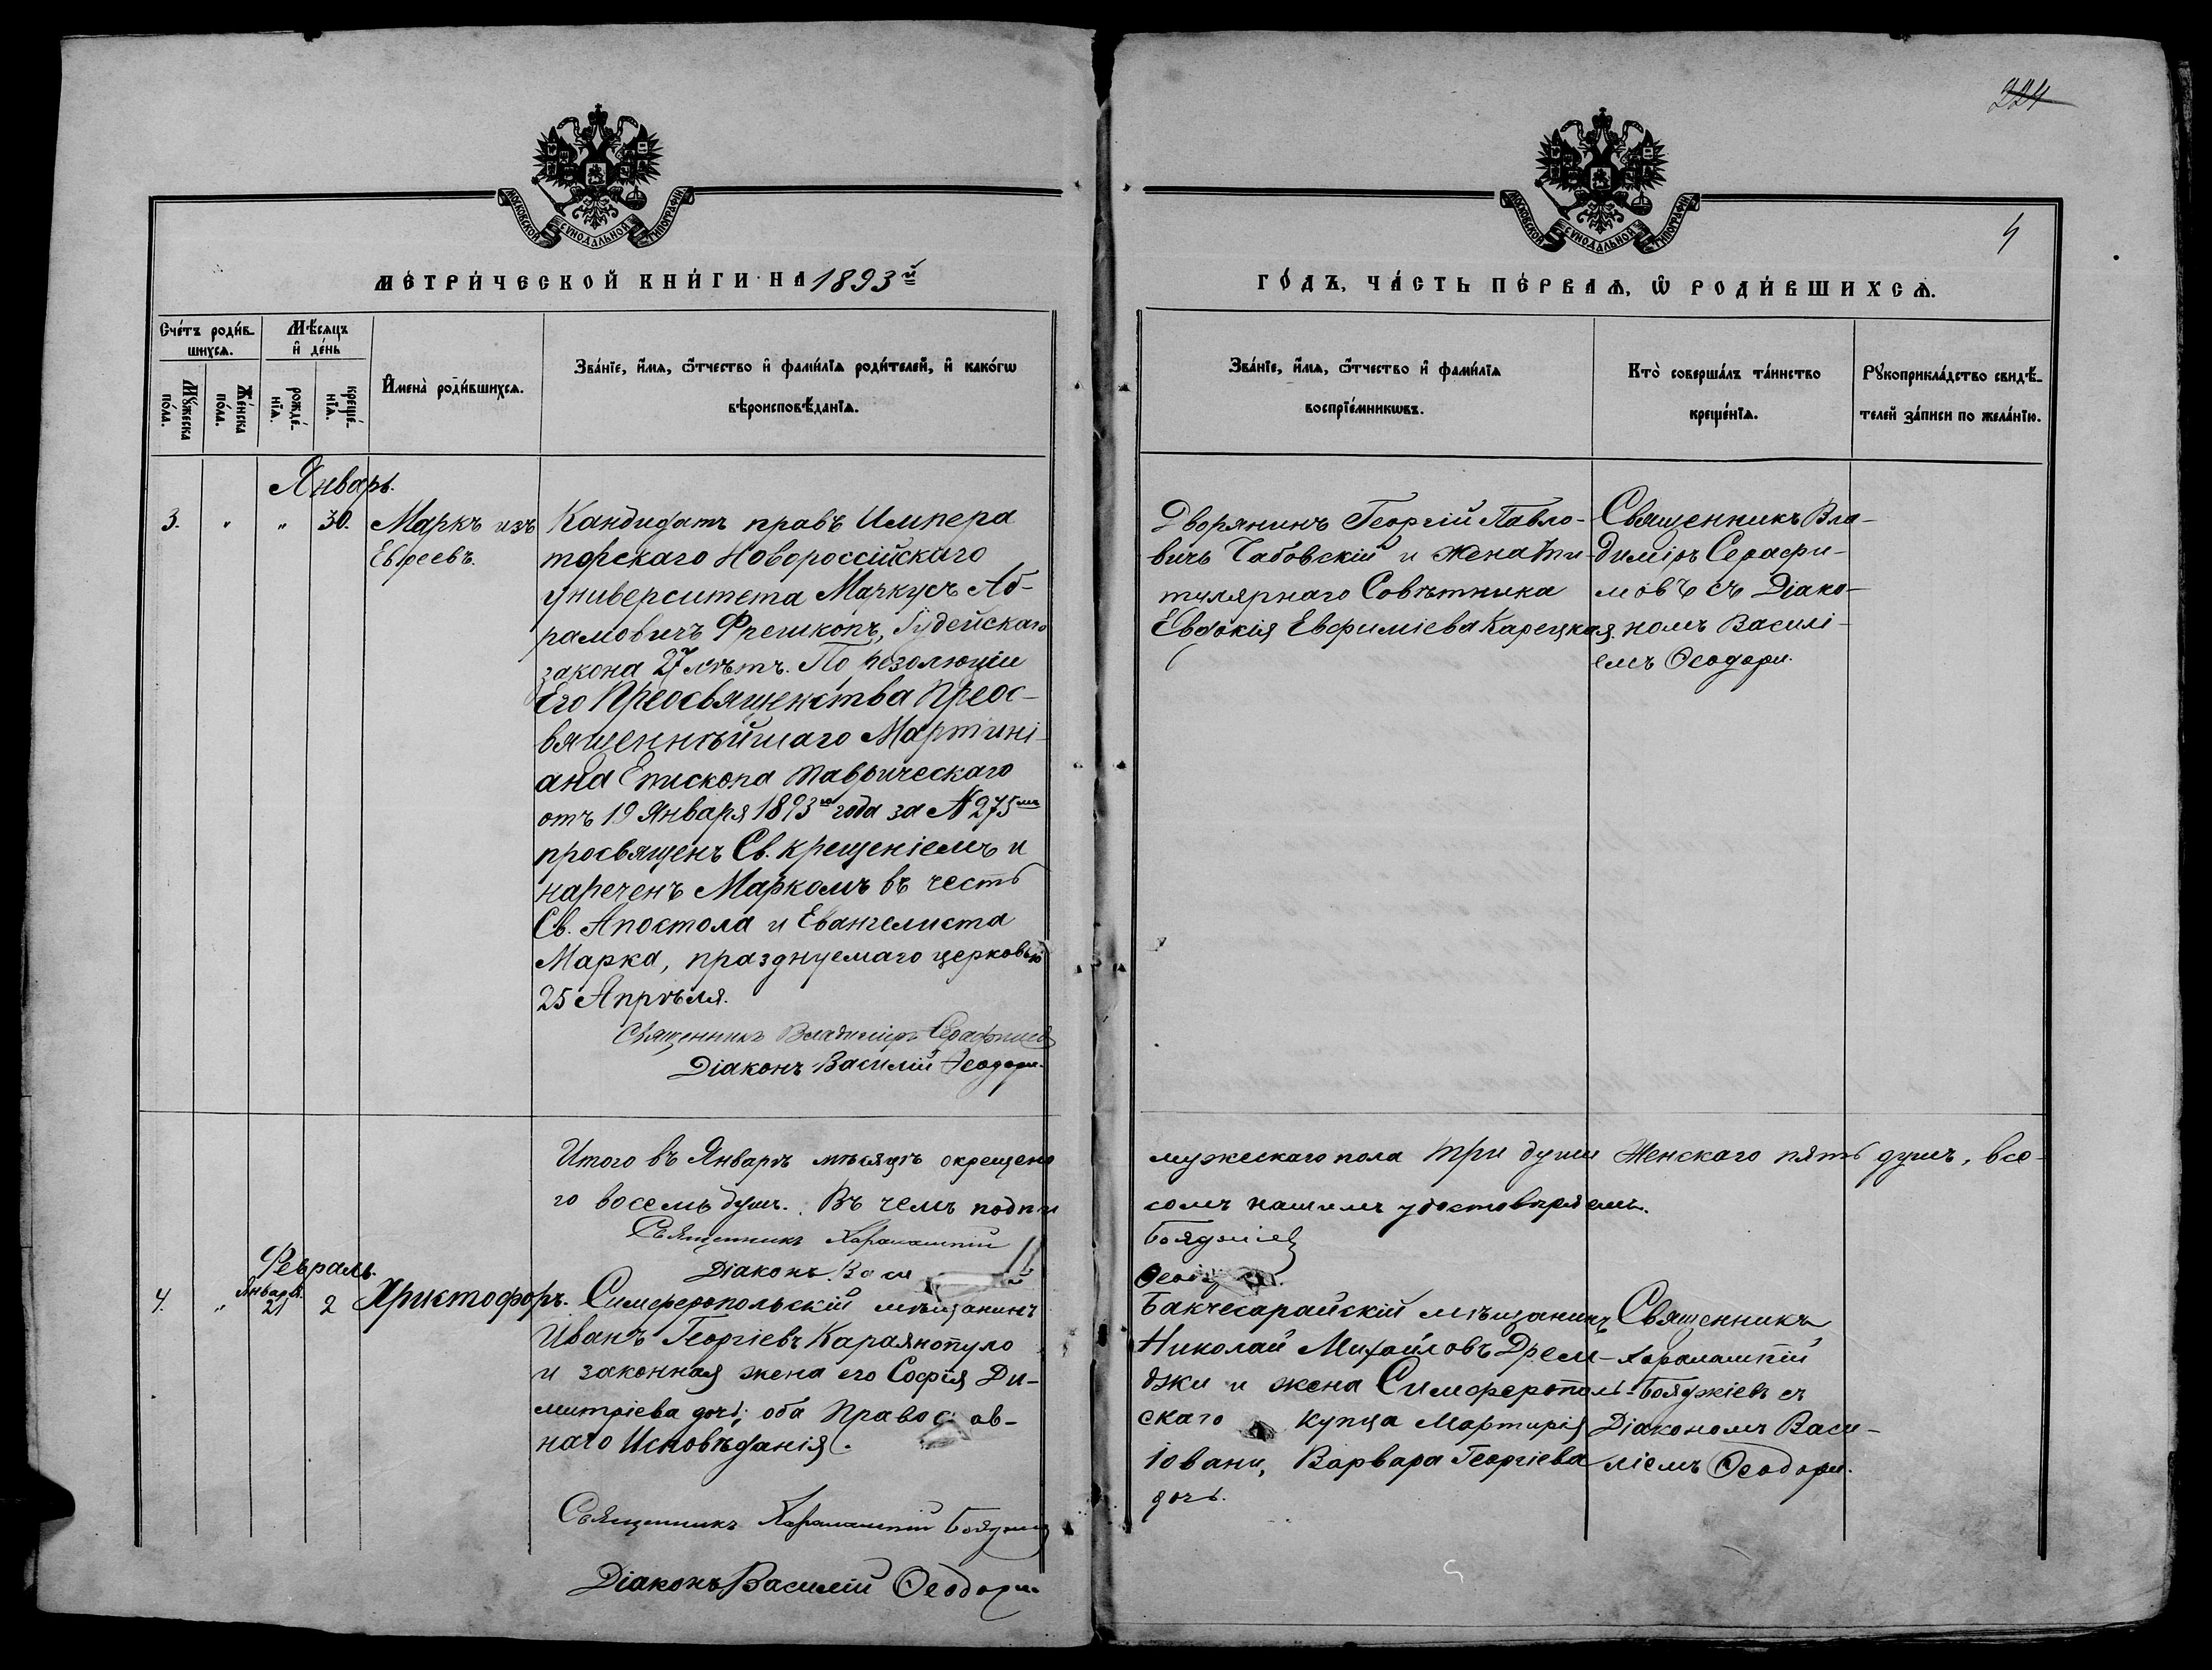 224
МОСКОВСКОЙ СѴНОДАЛЬНОЙ ТИПОГРАФІИ
МОСКОВСКОЙ СѴНОДАЛЬНОЙ ТИПОГРАФІИ
4
МЕ́ТРИ́ЧЕСКОЙ КНИ́ГИ НА 1893й
ГО́ДЪ, ЧА́СТЬ ПЕ́РВАѦ, Ѡ҆ РОДИ́ВШИХСѦ.
Сче́тъ роди́в-
шихсѧ.
Мꙋ́жеска по́ла.
Же́нска по́ла.
Мѣ́сѧцъ
и҆ де́нь
рожде́-
нїѧ.
креще́-
нїѧ.
И҆мена̀ роди́вшихсѧ.
Зва́нїе, и҆́мѧ, ѻ҆́тчество и҆ фами́лїѧ роди́телей, и҆ како́гѡ
вѣроисповѣ́данїѧ.
Зва́нїе, и҆́мѧ, ѻ҆́тчество и҆ фами́лїѧ
воспрїе́мникѡвъ.
Кто̀ соверша́лъ та́инство
креще́нїѧ.
Рꙋкоприкла́дство свидѣ́-
телей за́писи по жела́нїю.
Январь.
3. " " 30.
Маркъ изъ
Евреевъ.
Кандидатъ правъ Импера
торскаго Новороссійскаго
университета Маркусъ Аб-
рамовичъ Фрешкопъ, Іудейскаго
закона 27 лѣтъ. По резолюціи
Его Преосвященства Преос-
вященнѣйшаго Мартині-
ана Епископа Таврическаго
отъ 19 Января 1893го года за № 275мъ
просвященъ Св. крещеніемъ и
нареченъ Маркомъ въ честь
Св. Апостола и Евангелиста
Марка, празднуемаго церковью
25 Апрѣля.
Священникъ Владиміръ Серафимов
Діаконъ Василій Ѳеодори.
Дворянинъ Георгій Павло-
вичъ Чабовскій и жена Ти-
тулярнаго Совѣтника
Евдокія Евфиміева Карецкая.
Священникъ Вла-
диміръ Серафи-
мовъ съ Діако-
номъ Василі-
емъ Ѳеодори.
Итого въ Январѣ мѣсяцѣ окрещено мужескаго пола три души Женскаго пять душъ, все-
го восемь душъ. Въ чемъ подпи сомъ нашимъ удостовѣряемъ.
Священникъ Харалампій Бояджіев
Діаконъ Васи
Февраль.
4. " Января 21 2
Христофоръ.
Симферопольскій мѣщанинъ
Иванъ Георгіевъ Караянопуло
и законная жена его Софія Ди-
митріева дочь; оба Правос ав-
наго Исповѣданія.
Священникъ Харалампій Бояджіев
Діаконъ Василій Ѳеодори
Бакчесарайскій мѣщанинъ
Николай Михайловъ Дрем-
джи и жена Симферополь-
скаго купца Мартирія
Іовани, Варвара Георгіева
дочь.
Священникъ
Харалампій
Бояджіевъ съ
Діакономъ Васи-
ліемъ Ѳеодори.